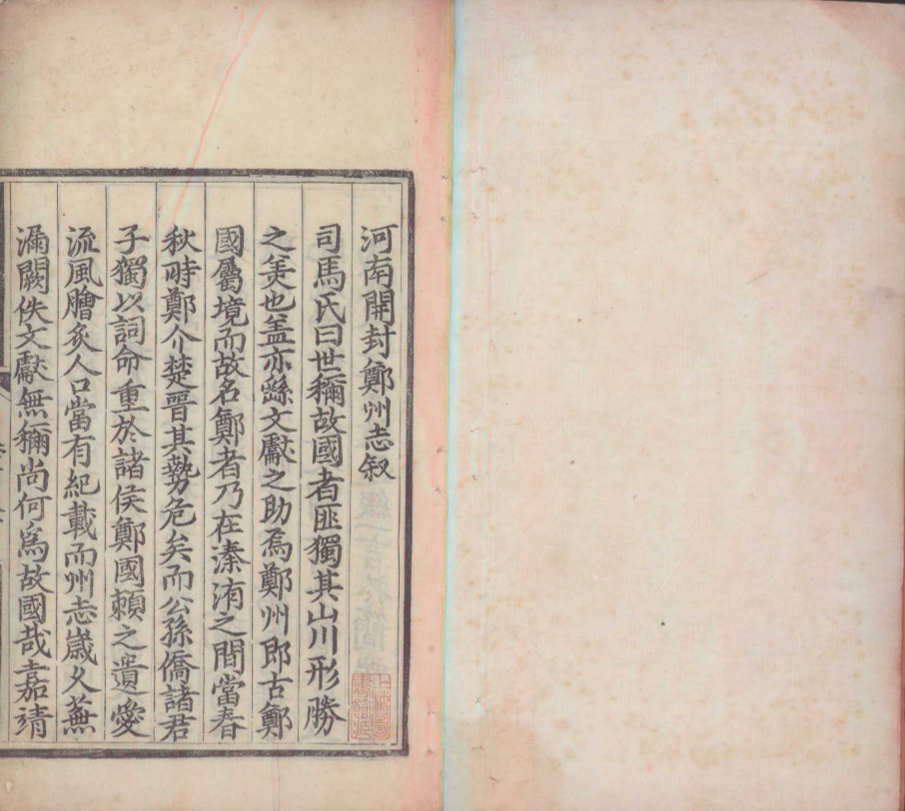 河南開封鄭州志叙
司馬氏曰世稱故國者匪獨其山川形勝
之羙也盖亦繇文獻之助焉鄭州即古鄭
國屬境而故名鄭者乃在溱洧之間當春
秋時鄭介楚晉其勢危矣而公孫僑諸君
子獨以詞命重於諸侯鄭國頼之遺愛
流風膾炙人口當有紀載而州志嵗久蕪
漏闕佚文獻無稱尚何爲故國哉嘉靖
上海圖
書館藏